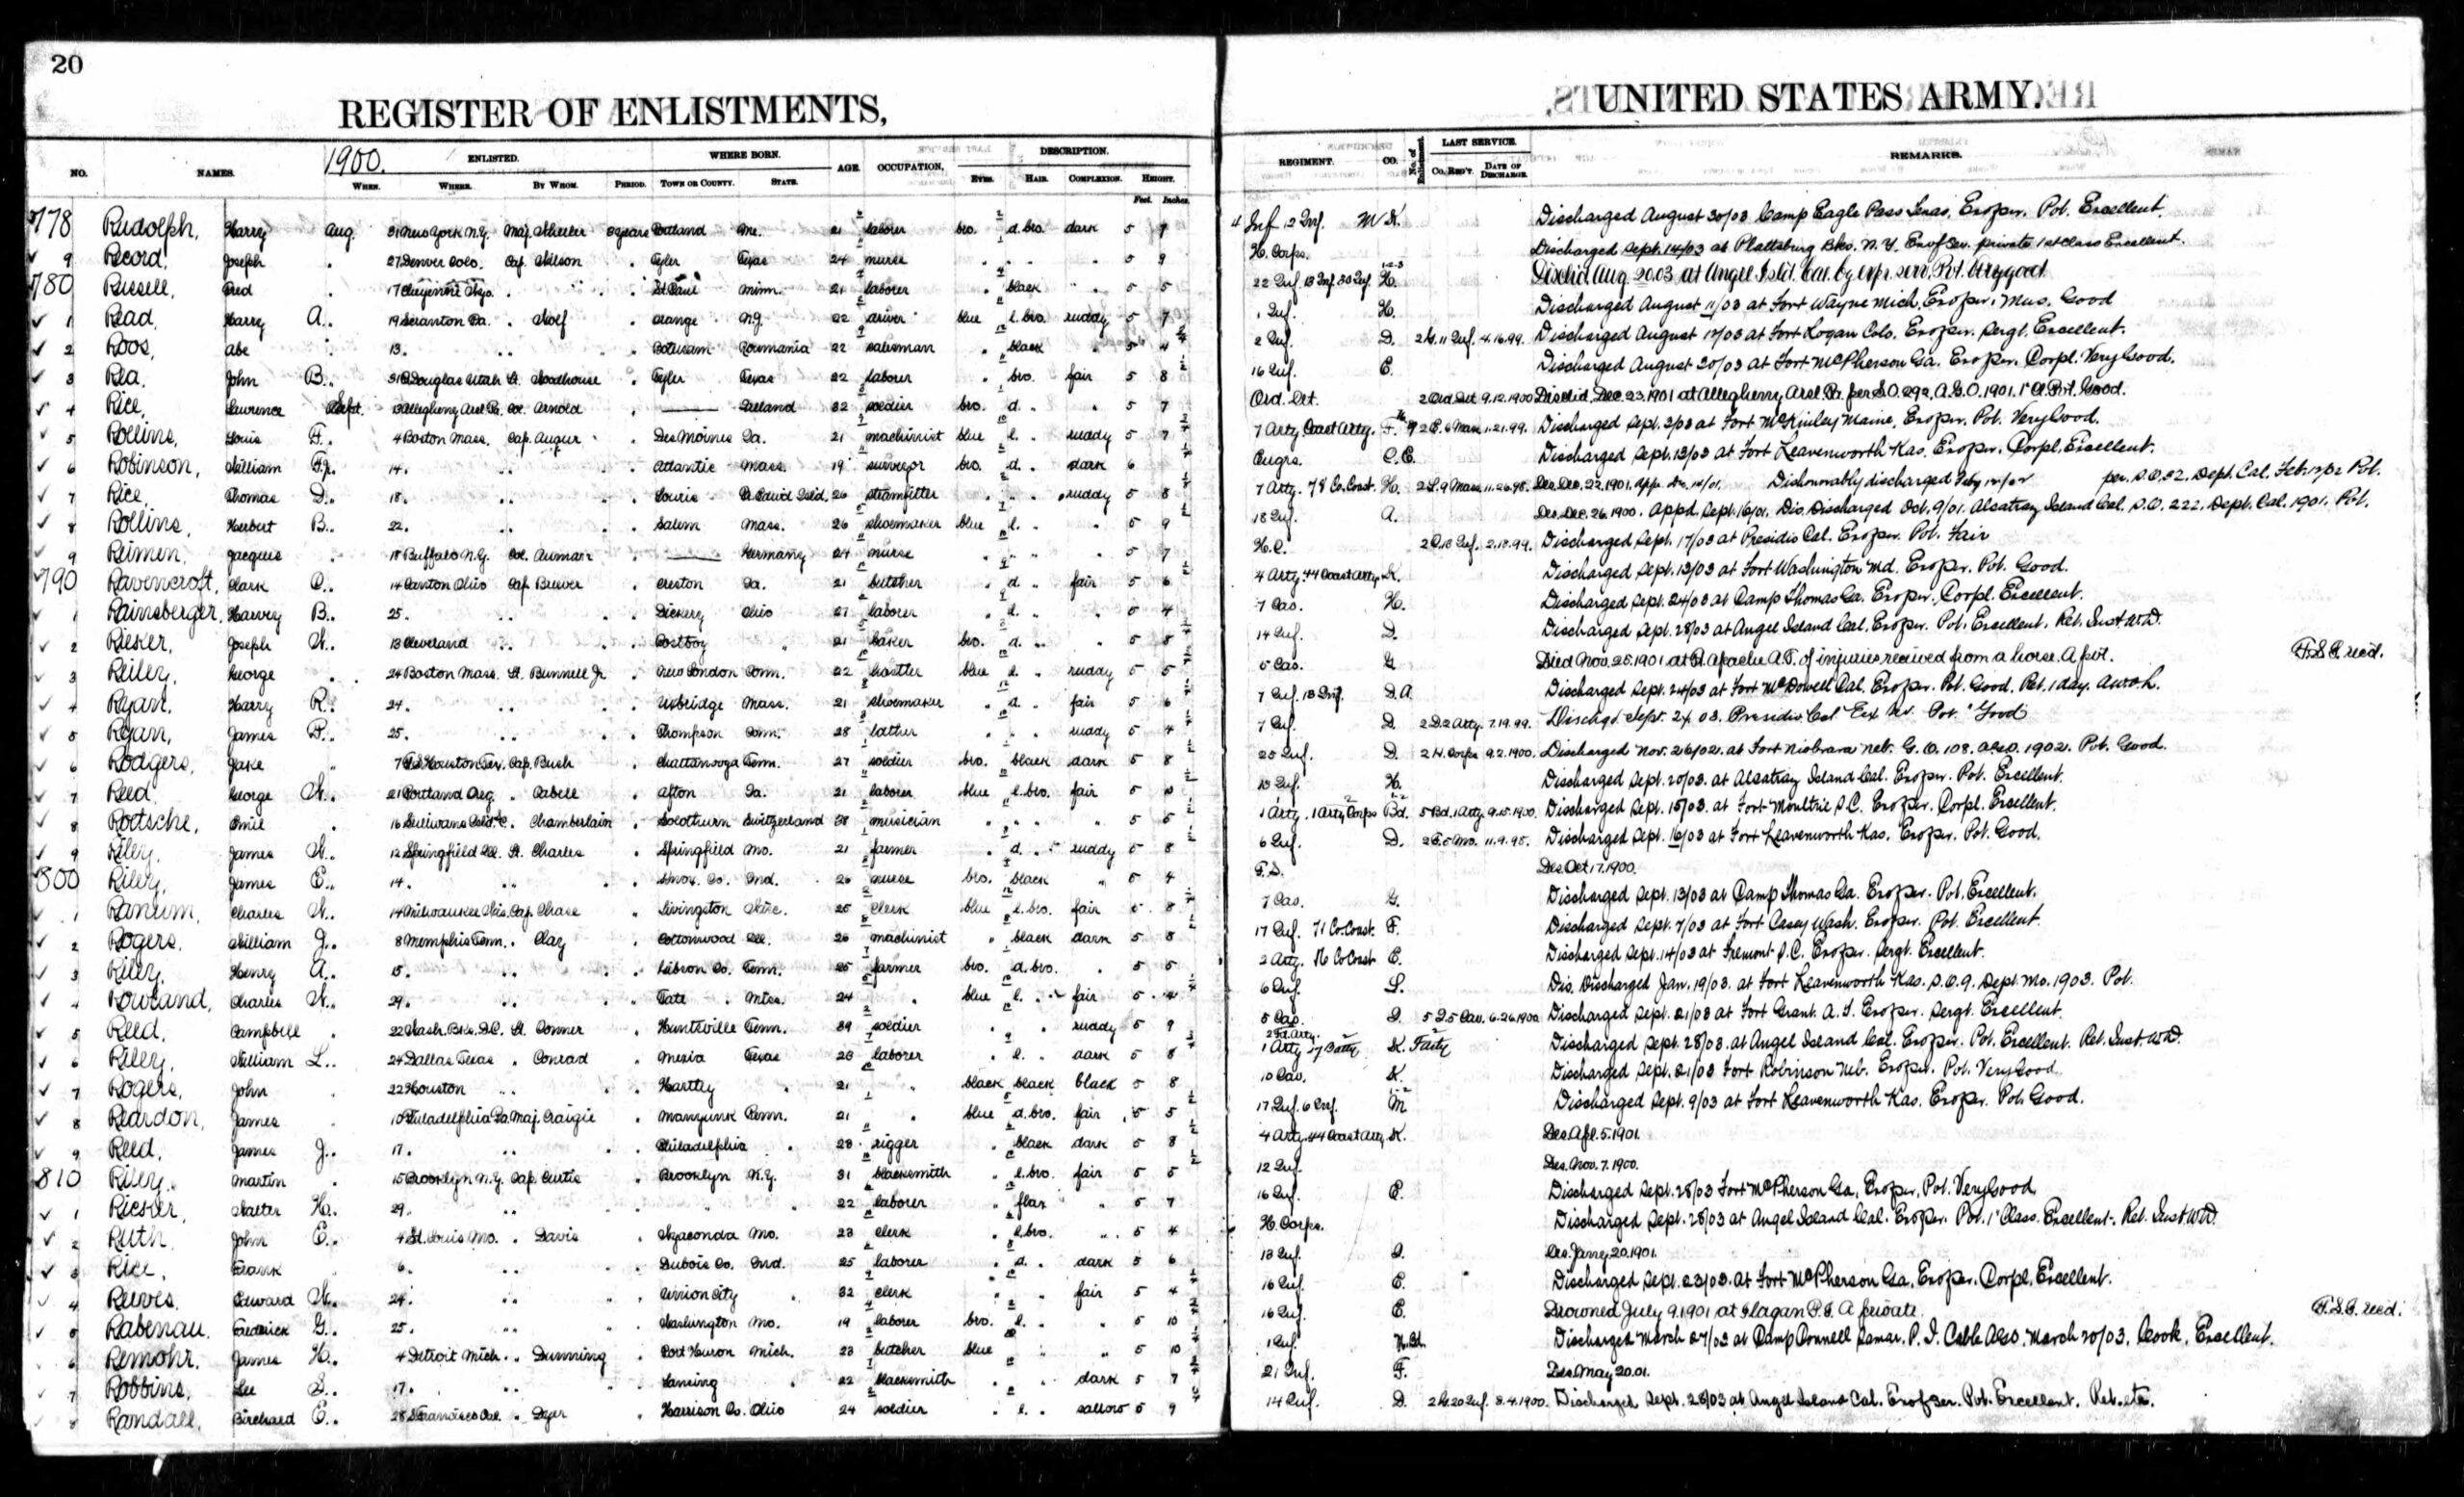 20
REGISTER OF ENLISTMENTS,
UNITED STATES ARMY.
1900.
NO. NAMES. ENLISTED. WHEN. WHERE. BY WHOM. PERIOD. WHERE BORN. TOWN OR COUNTY. STATE. AGE. OCCUPATION. DESCRIPTION. EYES. HAIR. COMPLEXION. HEIGHT. Feet. Inches.
REGIMENT. CO. No. of Enlistment. LAST SERVICE. CO. REG'T. DATE OF DISCHARGE. REMARKS.
778 Rudolph, Harry Aug. 31 New York N.Y. Maj. Wheeler 3 years Portland Me. 21 laborer bro. d.bro. dark 5 7 Inf. 12 Inf. M K. Discharged August 30/03 Camp Eagle Pass Texas. Exp ser. Pvt. Excellent.
9 Record, Joseph 27 Denver Colo. Cap. Wilson Tyler Texas 24 nurse 5 9 H. Corps. Discharged Sept. 14/03 at Plattsburg Bks. N.Y. Exp ser. private 1st class Excellent.
780 Russell, Fred 17 Cheyenne Wyo. St Paul Minn. 21 laborer black 5 5 22 Inf. 13 Inf. 30 Inf. H. Dischd Aug. 20.03 at Angel Isld. Cal. by exp. serv. Pvt. Very good
1 Read, Harry A. 19 Scranton Pa. Wolf Orange N.J. 22 driver blue l.bro. ruddy 5 7 1 Inf. H. Discharged August 11/03 at Fort Wayne Mich. Exp ser. Mus. Good
2 Roos, Abe 13. Botusam Roumania 22 salesman black 5 4 2 Inf. D. 2 G. 11 Inf. 4.16.99. Discharged August 12/03 at Fort Logan Colo. Exp ser. Sergt. Excellent.
3 Rea, John B. 31 Ft. Douglas Utah Lt. Woodhouse Tyler Texas 22 laborer bro. fair 5 8 16 Inf. C. Discharged August 30/03 at Fort McPherson Ga. Exp ser. Corpl. Very Good.
4 Rice, Lawrence Sept. 13 Allegheny Arsl Pa. Col. Arnold Ireland 32 soldier bro. d. 5 7 Ord. Det. 2 Ord Det 9.12.1900 Dischd. Dec. 23.1901 at Allegheny Arsl. Pa. per S.O. 292, A.G.O. 1901. 1" Cl. Pvt. Good.
5 Rollins, Louis F. 4 Boston Mass. Cap. Augur Des Moines Ia. 21 machinist blue l. ruddy 5 7 7 Arty. Coast Arty. F. 2 C. 6 Mass 1.21.99. Discharged Sept. 3/03 at Fort McKinley Maine, Exp ser. Pvt. Very Good.
6 Robinson, William 14. Atlantic Mass. 19 surveyor bro. d. dark 6 Engrs. C. E. Discharged Sept. 13/03 at Fort Leavenworth Kas. Exp ser. Corpl. Excellent.
7 Rice, Thomas D. 18. Louris 26 steamfitter ruddy 5 8 7 Arty. 78 Co. Coast. H. 2 L. 9 Mass. 11.26.98. Des. Dec. 22.1901. app. Dishonorably discharged Feby 12/02 per. S.O. 32. Dept. Cal. Feb. 12/02 Pvt.
8 Rollins, Herbert B. 22. Salem Mass. 26 shoemaker blue l. 5 9 18 Inf. A. Des. Dec. 26.1900. Appd. Sept. 16/01. Dis. Discharged Oct. 9/01. Alcatraz Island Cal. S.O. 222. Dept. Cal. 1901. Pvt.
9 Reimen, Jacques 18 Buffalo N.Y. Col. Auman Germany 24 nurse 5 7 H.C. 2 C. 13 Inf. 2.18.99. Discharged Sept. 17/03 at Presidio Cal. Exp ser. Pvt. Fair
790 Ravencroft, Clark C. 14 Canton Ohio Cap. Brewer Creston Ia. 21 butcher d. fair 5 6 4 Arty. 44 Coast Arty. K. Discharged Sept. 13/03 at Fort Washington Md. Exp ser. Pvt. Good.
1 Rainsberger, Harvey B. 25. Ohio 27 laborer d. 5 4 7 Cav. H. Discharged Sept. 24/03 at Camp Thomas Ga. Exp ser. Corpl. Excellent.
2 Riesker, Joseph W. 13 Cleveland 21 baker bro. d. 5 5 14 Inf. D. Discharged Sept. 28/03 at Angel Island Cal. Exp ser. Pvt. Excellent. Ret. Inst. W.D.
3 Reiley, George 24 Boston Mass. Lt. Bunnell Jr New London Conn. 22 hostler blue l. ruddy 5 5 5 Cav. G Died Nov. 25.1901 at Ft. Apache A.T. of injuries received from a horse. A pvt. F.S.C. recd.
4 Ryan, Harry R. 24. Uxbridge Mass. 21 shoemaker d. fair 5 6 7 Inf. 13 Inf. D.A. Discharged Sept. 24/03 at Fort McDowell Cal. Exp ser. Pvt. Good. Ret. 1 day. awol.
5 Ryan, James P. 25. Thompson Conn. 28 lather ruddy 5 4 7 Inf. D. 2 D. 2 Arty. 7.19.99. Dischgd. Sept. 24 03. Presidio Cal Ex ser. Pvt. "Good"
6 Rodgers, Jake 7 Ft. S. Houston Tex. Cap. Bush Chattanooga Tenn. 27 soldier bro. black dark 5 8 25 Inf. D. 2 H. Corps 9.2.1900. Discharged Nov. 26/02. at Fort Niobrara Neb. G.O. 108. A.G.O. 1902. Pvt. Good.
7 Reed, George W. 21 Portland Oreg. Cabell Afton Ia. 21 laborer blue l.bro. fair 5 10 H. Discharged Sept. 20/03. at Alcatraz Island Cal. Exp ser. Pvt. Excellent.
8 Roetsche, Emil 16 Sullivans Isld S.C. Chamberlain Solothurn Switzerland 38 musician 5 5 1 Arty. 1 Arty Corps Bd. 5 Bd. 1 Arty. 9.15.1900. Discharged Sept. 15/03. at Fort Moultrie S.C. Exp ser. Corpl. Excellent.
9 Riley, James W. 12 Springfield Ill. Lt. Charles Springfield Mo. 21 farmer d. ruddy 5 8 6 Inf. D. 2 F. 5 Mo. 11.9.98. Discharged Sept. 16/03 at Fort Leavenworth Kas. Exp ser. Pvt. Good.
800 Riley, James E. 14. Knox. Co. Ind. 26 nurse bro. black 5 4 F.S. Des. Oct. 17.1900.
1 Ranum, Charles W. 14 Milwaukee Wis. Cap. Chase Livingston Wisc. 25 clerk blue l.bro. fair 5 8 7 Cav. G. Discharged Sept. 13/03 at Camp Thomas Ga. Exp ser. Pvt. Excellent.
2 Rogers, William J. 8 Memphis Tenn. Clay Cottonwood Ill. 26 machinist black dark 5 8 17 Inf. 71 Co. Coast F. Discharged Sept. 7/03 at Fort Casey Wash. Exp ser. Pvt. Excellent.
3 Riley, Henry A. 15. Gibson Co. Tenn. 25 farmer bro. d.bro. 5 5 2 Arty. 16 Co Coast E. Discharged Sept. 14/03 at Fremont S.C. Exp ser. Sergt. Excellent.
4 Rowland, Charles W. 29. Tate Miss. 24 blue l. fair 5 4 6 Inf. L. Dis. Discharged Jan. 19/03. at Fort Leavenworth Kas. S.O. 9. Dept. Mo. 1903. Pvt.
5 Reed, Campbell 22 Wash. Bks. D.C. Lt. Conner Huntsville Tenn. 39 soldier ruddy 5 9 5 Cav. I. 5 I. 5 Cav. 6.26.1900. Discharged Sept. 21/03 at Fort Grant. A.T. Exp ser. Sergt. Excellent.
6 Riley, William L. 24 Dallas Texas Conrad Mexia Texas 23 laborer l. dark 5 8 1 Arty 17 Batty K. Discharged Sept. 28/03. at Angel Island Cal. Exp ser. Pvt. Excellent. Ret. Inst. W.D.
7 Rogers, John 22 Houston Hartley 21 black black black 5 8 10 Cav. K. Discharged Sept. 21/03 Fort Robinson Neb. Exp ser. Pvt. Very Good.
8 Reardon, James 10 Philadelphia Pa. Maj. Craigie Manyunk Penn. 21 blue d.bro. fair 5 5 17 Inf. 6 Inf. M Discharged Sept. 9/03 at Fort Leavenworth Kas. Exp ser. Pvt. Good.
9 Reed, James J. 17. Philadelphia 23 rigger black dark 5 8 4 Arty. 44 Coast Arty K. Des. Apl. 5.1901.
810 Riley, Martin 15 Brooklyn N.Y. Cap. Curtis Brooklyn N.Y. 31 blacksmith l.bro. fair 5 5 12 Inf. Des. Nov. 7.1900.
1 Riesler, Walter H. 29. 22 laborer flax 5 7 16 Inf. C. Discharged Sept. 28/03 Fort McPherson Ga. Exp ser. Pvt. Very Good
2 Ruth, John E. 4 St. Louis Mo. Davis Wyaconda Mo. 23 clerk l.bro. 5 4 H. Corps. Discharged Sept. 28/03 at Angel Island Cal. Exp ser. Pvt. 1" Class. Excellent. Ret. Inst W.D.
3 Rice, Frank 6. Dubois Co. Ind. 25 laborer d. dark 5 6 13 Inf. I. Des. Janry 20.1901.
4 Reeves, Edward W. 24. Union City 32 clerk fair 5 4 16 Inf. C. Discharged Sept. 23/03. at Fort McPherson Ga. Exp ser. Corpl. Excellent.
5 Rabenau, Frederick G. 25. Washington Mo. 19 laborer bro. l. 5 10 16 Inf. C. Drowned July 9.1901 at Ilagan P.I. A private. F.S.C. recd.
6 Remohr, James H. 4 Detroit Mich. Dunning Port Huron Mich. 23 butcher blue 5 10 1 Inf. Discharged March 27/03 at Camp Connell Samar. P.I. Cable AGO. March 20/03. Cook, Excellent.
7 Robbins, Lee S. 17. Lansing 22 blacksmith dark 5 7 21 Inf. F. Des. May 20.01.
8 Randall, Birchard E. 28 S. Francisco Cal. Dyer Harrison Co. Ohio 24 soldier l. sallow 5 9 14 Inf. D. 2 G. 20 Inf. 8.4.1900. Discharged Sept. 28/03 at Angel Island Cal. Exp ser. Pvt. Excellent. Ret. etc.